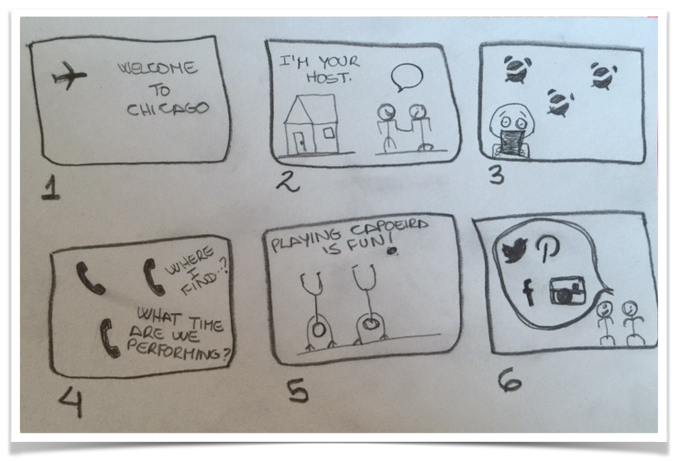 WELCOME
TO
CHICAGO
1
I'M YOUR
HOST.
2
3
WHERE
I
FIND..?
WHAT TIME
ARE WE
PERFORMING?
4
PLAYING CAPOEIRA
IS FUN!
5
6